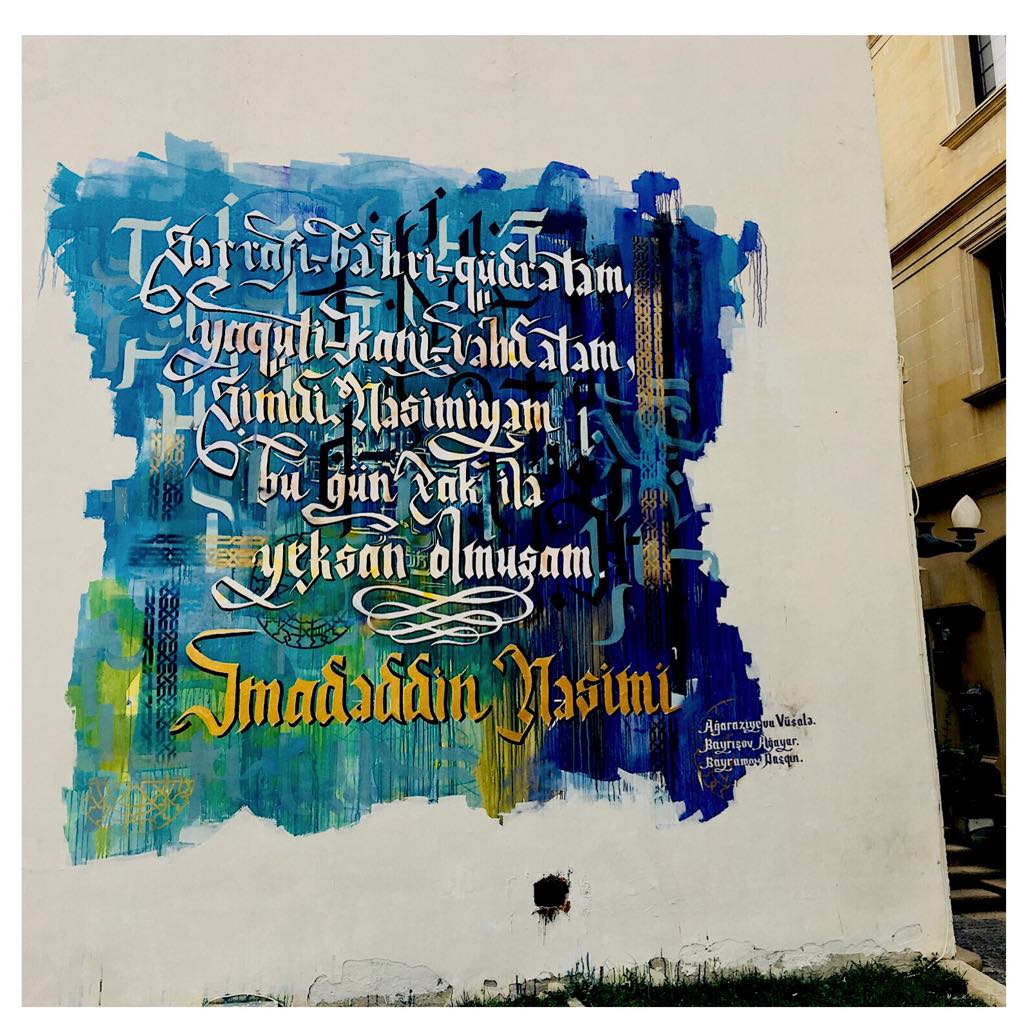 Sərrafi-bəhri-qüdrətəm,
yaquti-kani-vəhdətəm,
Şimdi, Nəsimiyəm
bu gün xak ilə
yeksan olmuşam.
İmadəddin Nəsimi
Ağaraziyeva Vüsalə.
Bayrışov Ağayar.
Bayramov Daşqın.